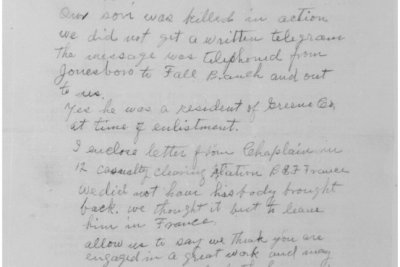 Our son was killed in action
we did not get a written telegram
the message was telephoned from
Jonesboro to Fall Branch and out
to us.
Yes he was a resident of Greene Co,
at time of enlistment.
I enclose letter from Chaplain in
12 casualty clearing station B E F France
we did not have his body brought
back. we thought it best to leave
him in France.
allow us to say we think you are
engaged in a great work and may